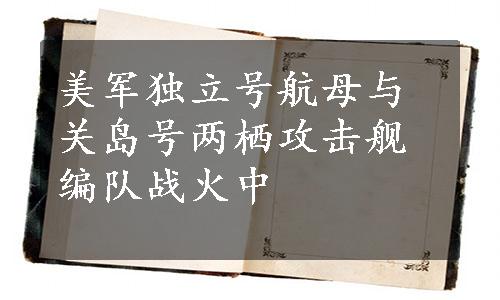 美军独立号航母与
关岛号两栖攻击舰
编队战火中